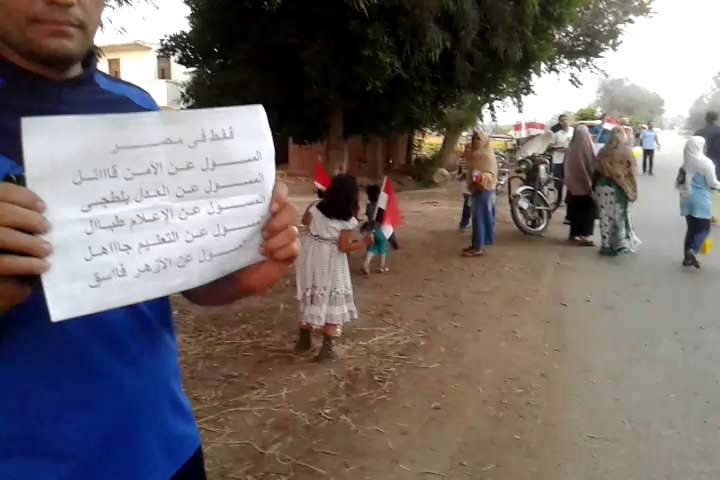 فقط فى مصر
المسول عن الأمن قااتل
المسول عن العدل بلطجى
المسول عن الإعلام طبال
المسول عن التعليم جااهل
سول عن الأزهر فاسق